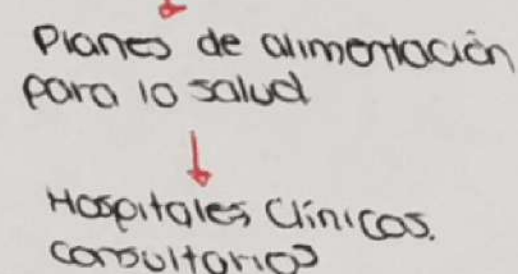 Planes de alimentación
para la salud
Hospitales, Clínicas.
consultorios